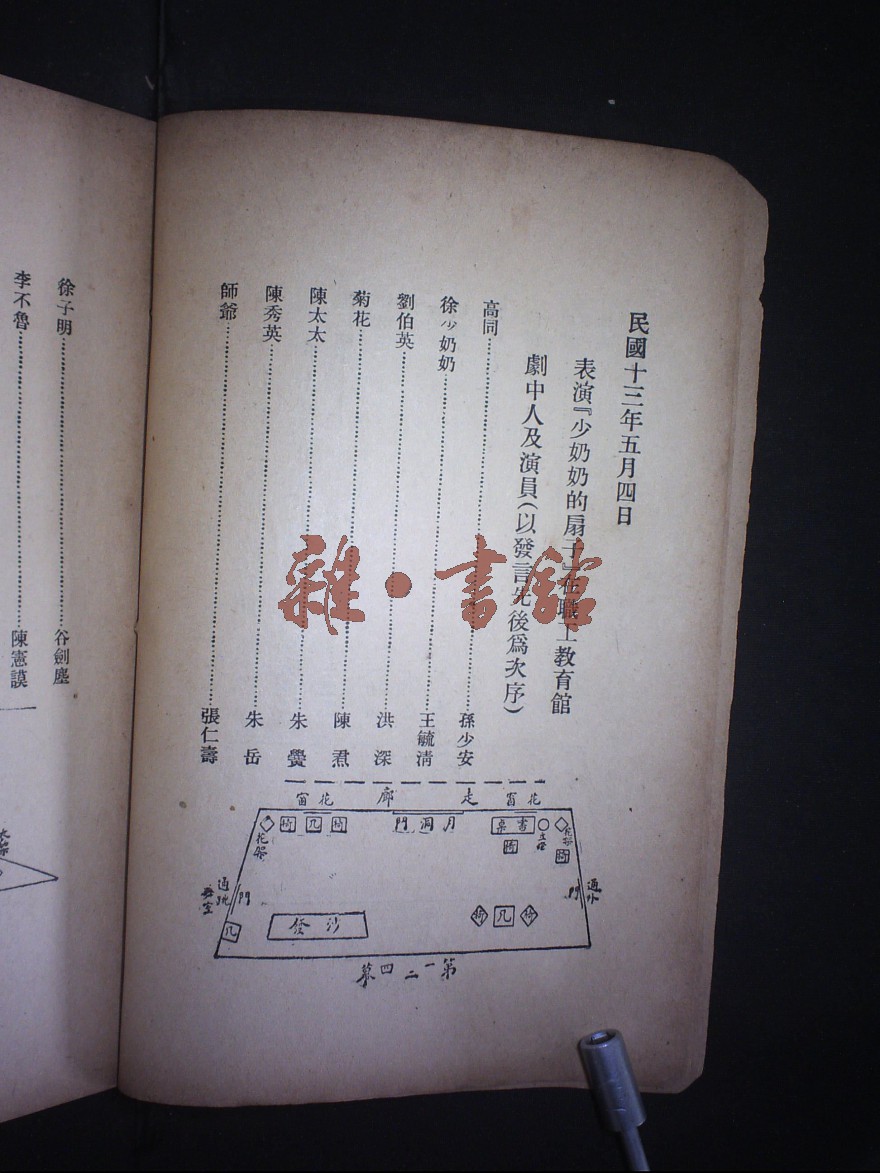 民國十三年五月四日
表演『少奶奶的扇子』在職工教育館
劇中人及演員(以發言先後爲次序)
高同……孫少安
徐少奶奶……王毓清
劉伯英……洪 深
菊花……陳 焄
陳太太……朱 爕
陳秀英……朱 岳
師爺……張仁壽
走廊
花窗
花窗
月洞門
書桌
椅
椅
几
椅
椅
花架
花架
門
通外
門
通跳舞室
几
沙發
椅
几
椅
第一二四幕
徐子明……谷劍塵
李不魯……陳憲謨
雜·書館